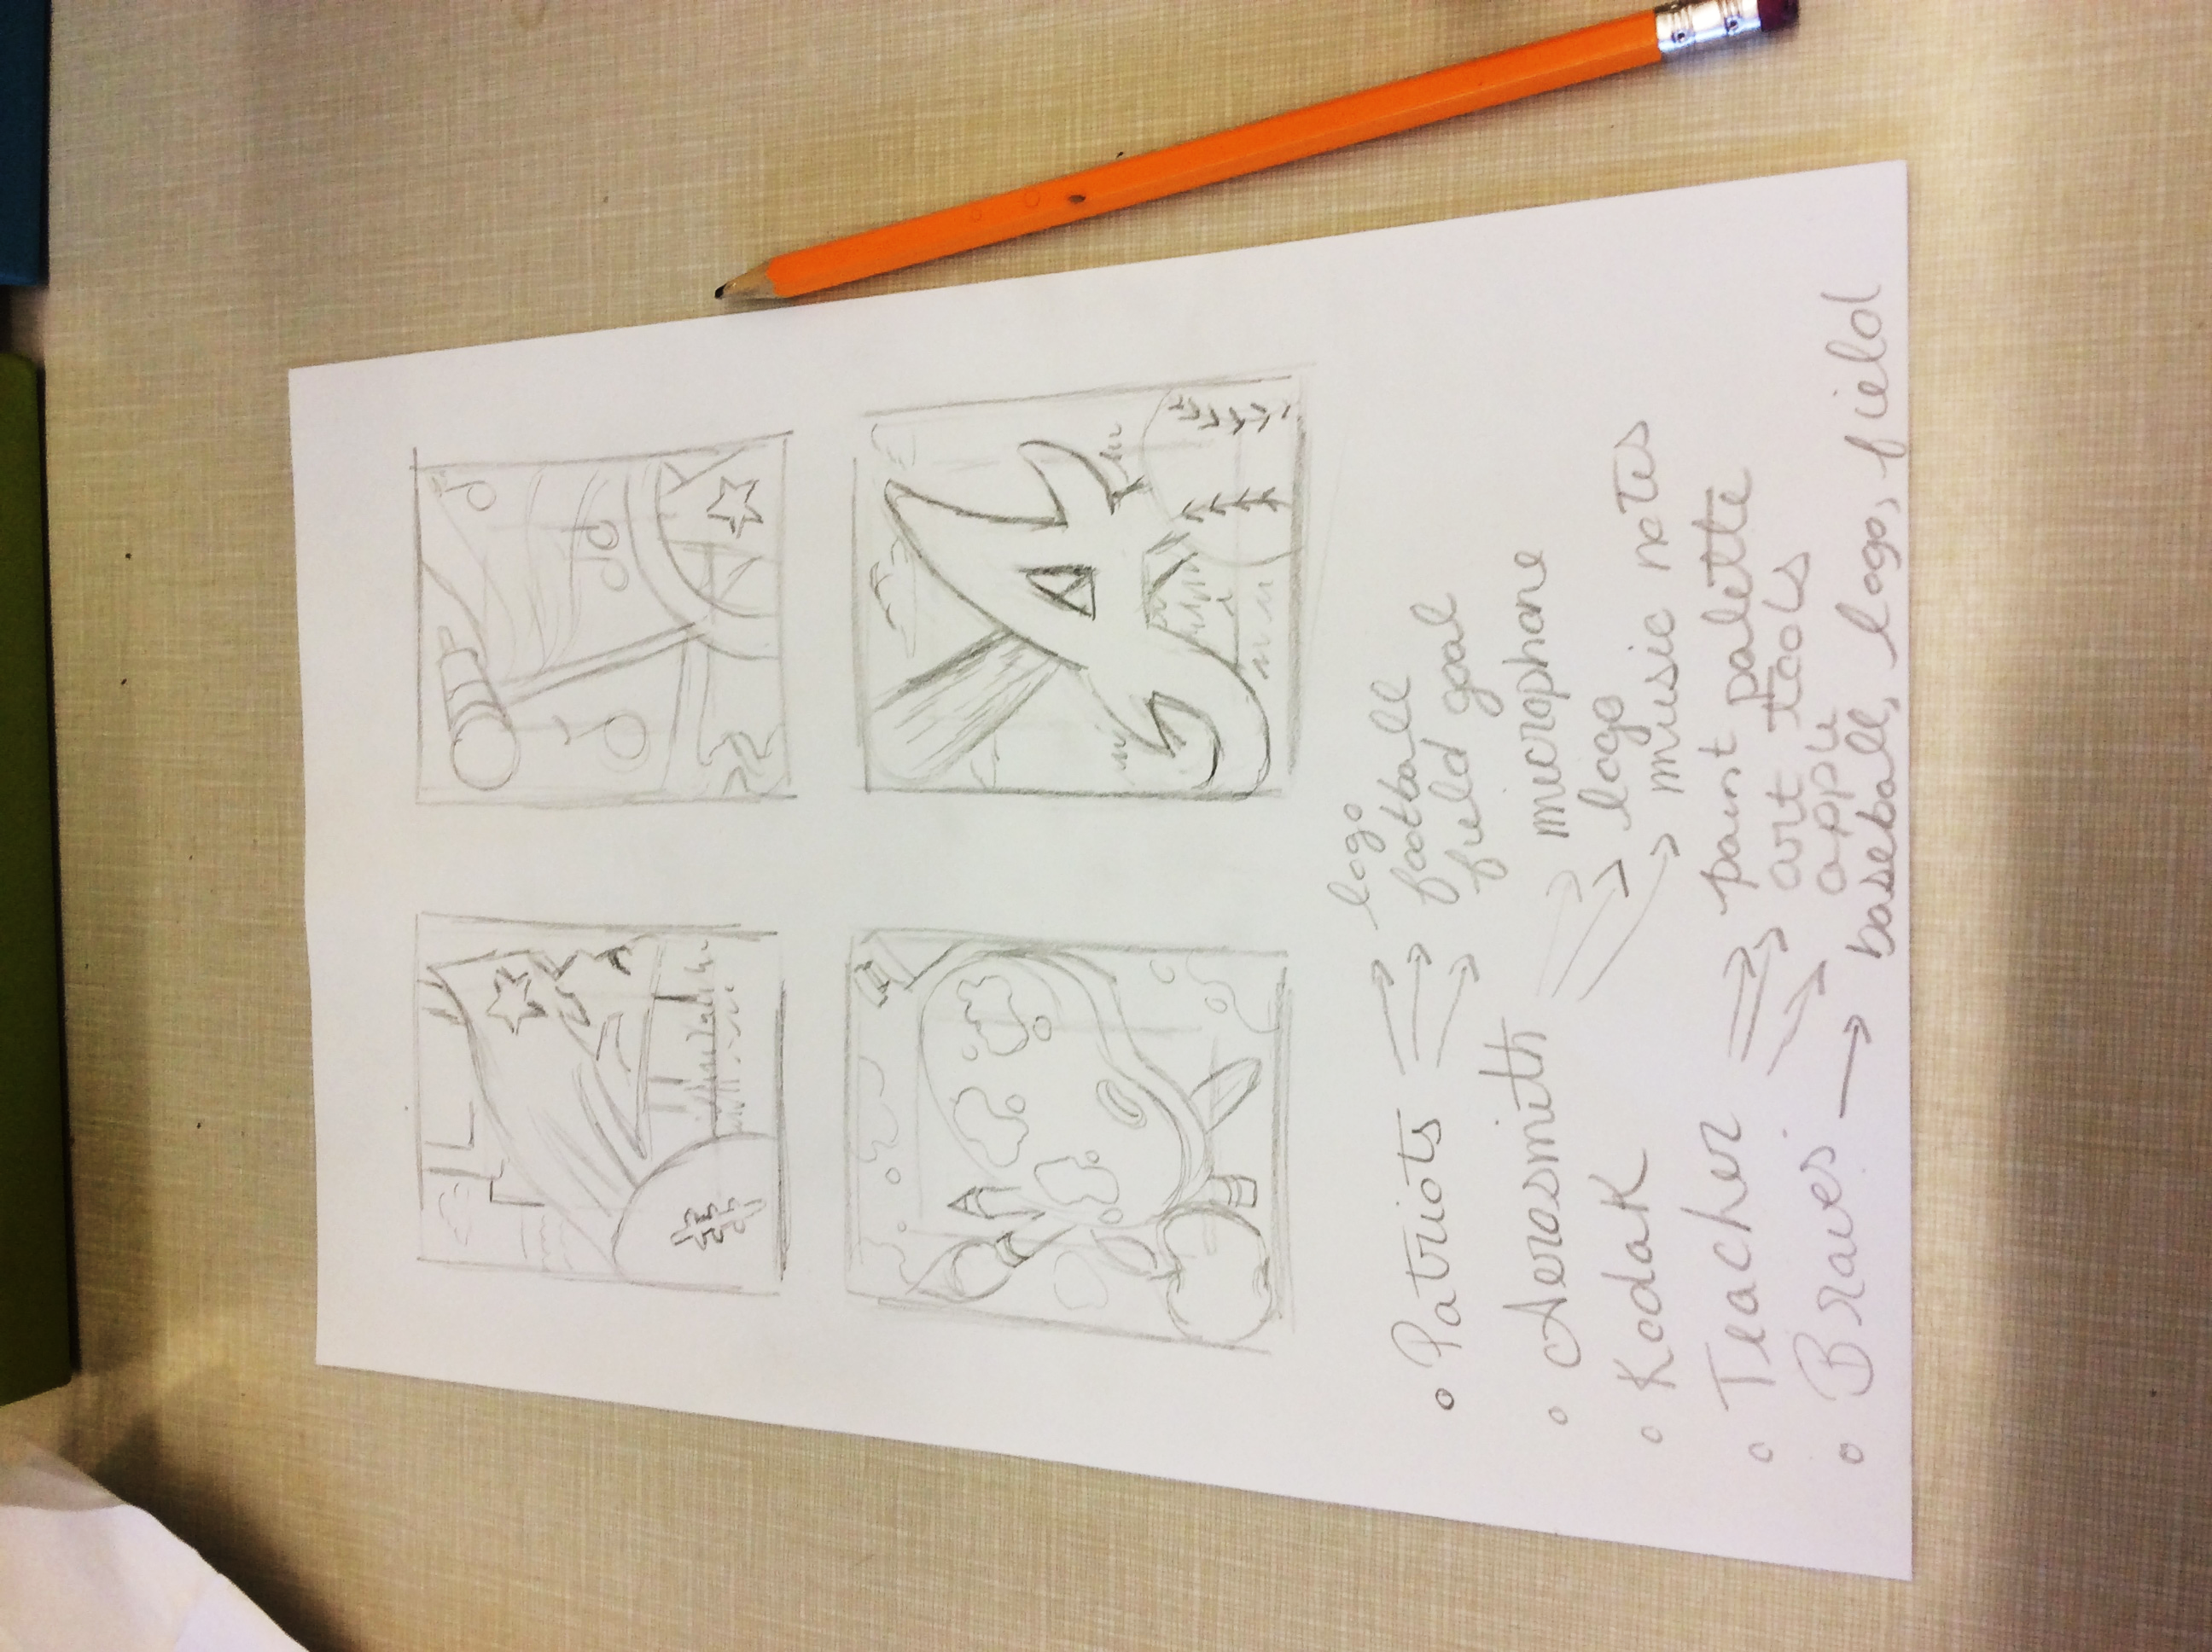 logo
• Patriots → football
field goal
• Aerosmith → microphone
• Kodak logo
music notes
• Teacher → paint palette
art tools
apple
• Braves → baseball, logo, field